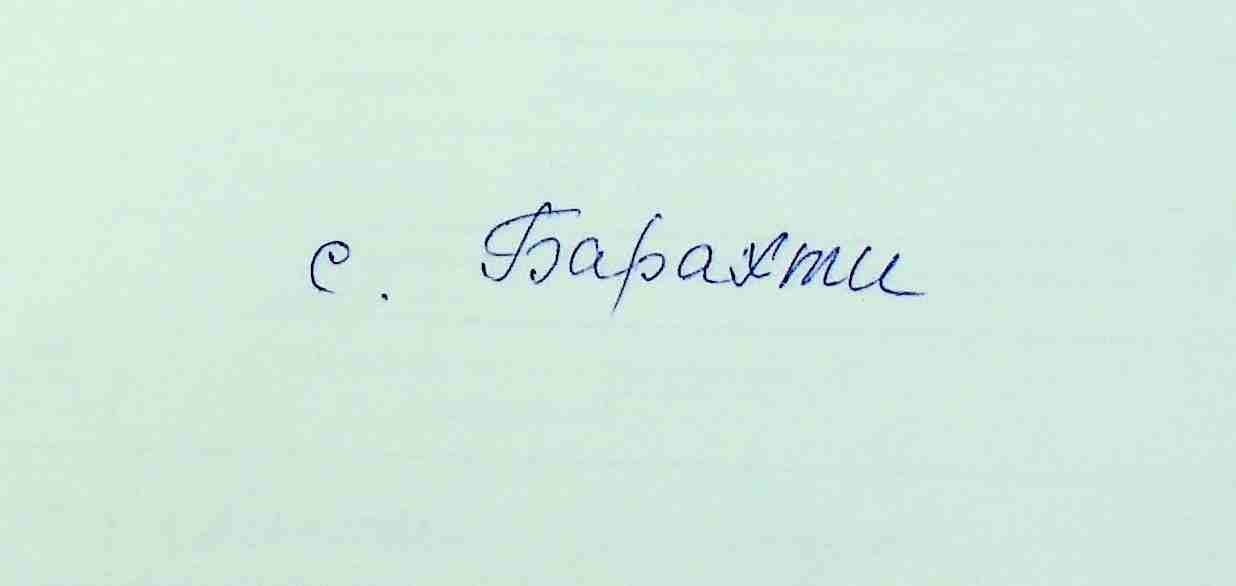 с. Барахти